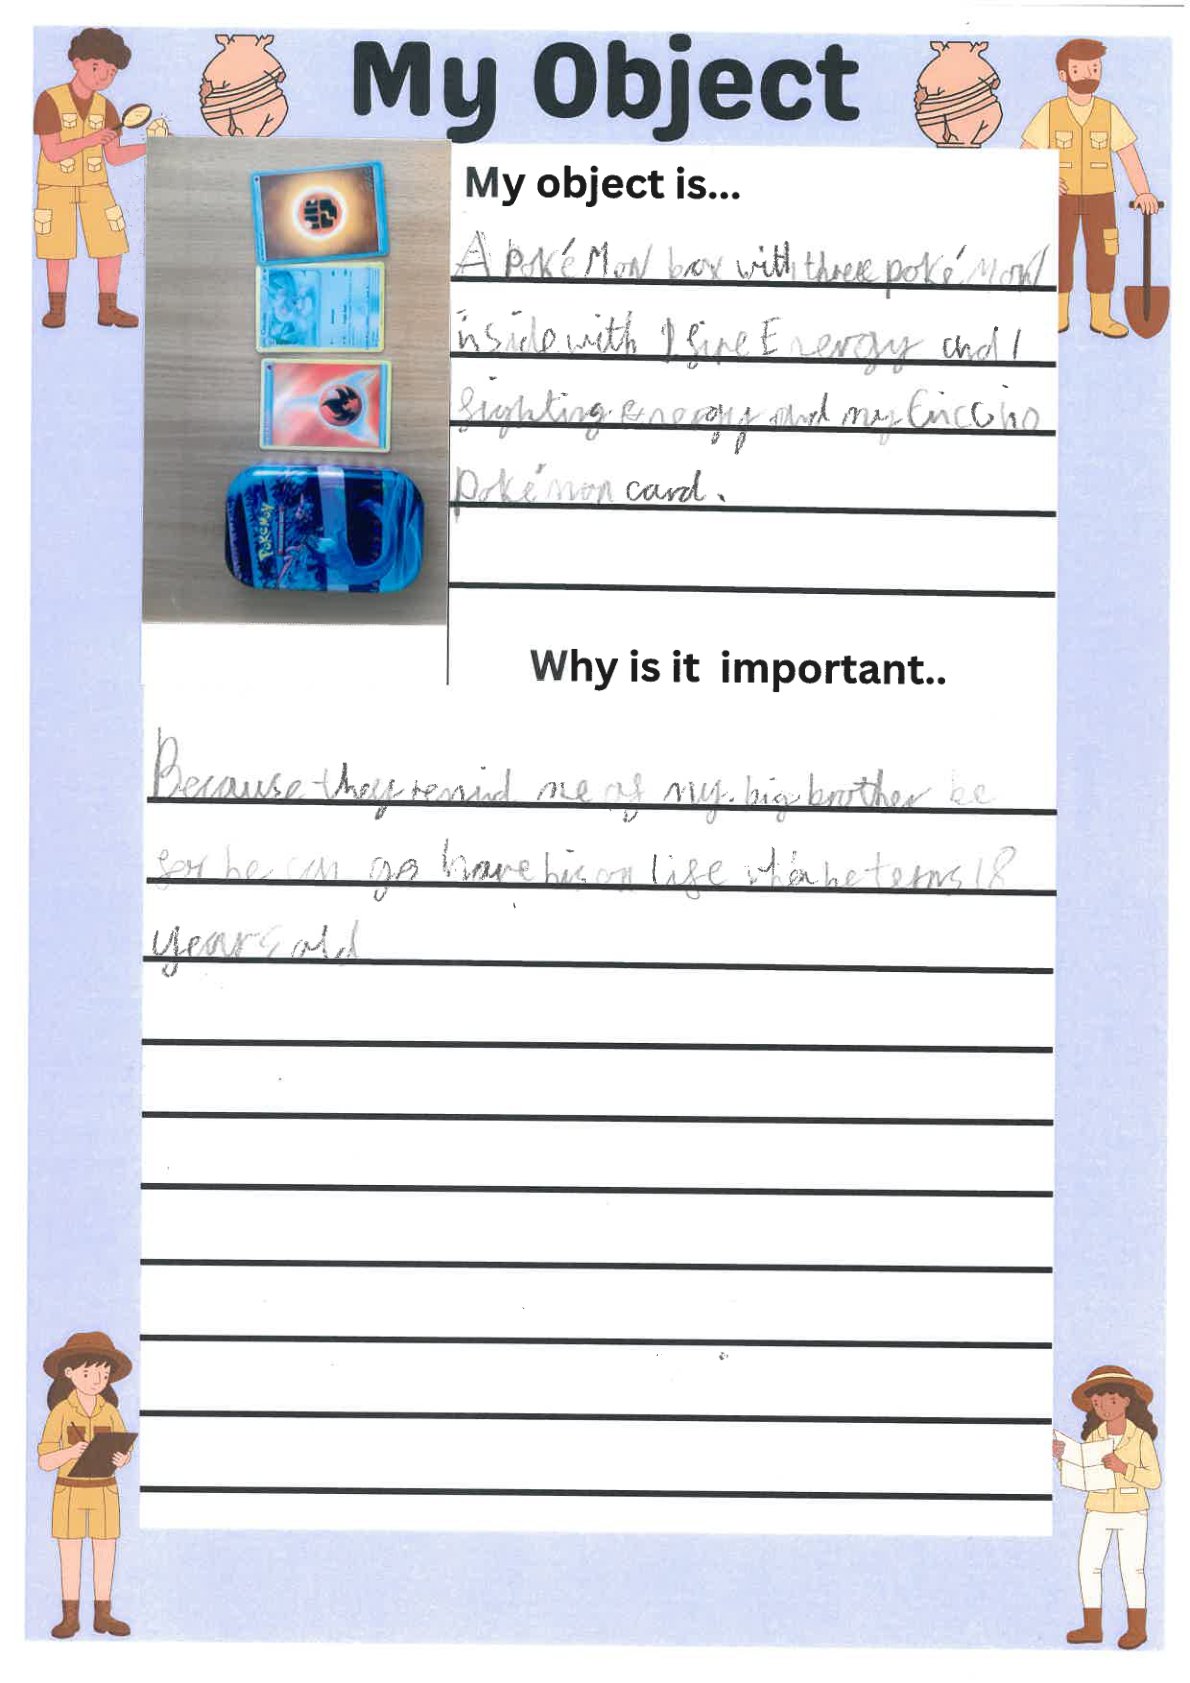 My Object
My object is...
A poké Mon box with three poké Mon
inside with 1 fire Energy and 1
fighting energy and my Cinccino
Poké mon card.
POKéMON
Why is it important..
Because they remind me of my big brother be
for he can go have his on life when he terns 18
years old